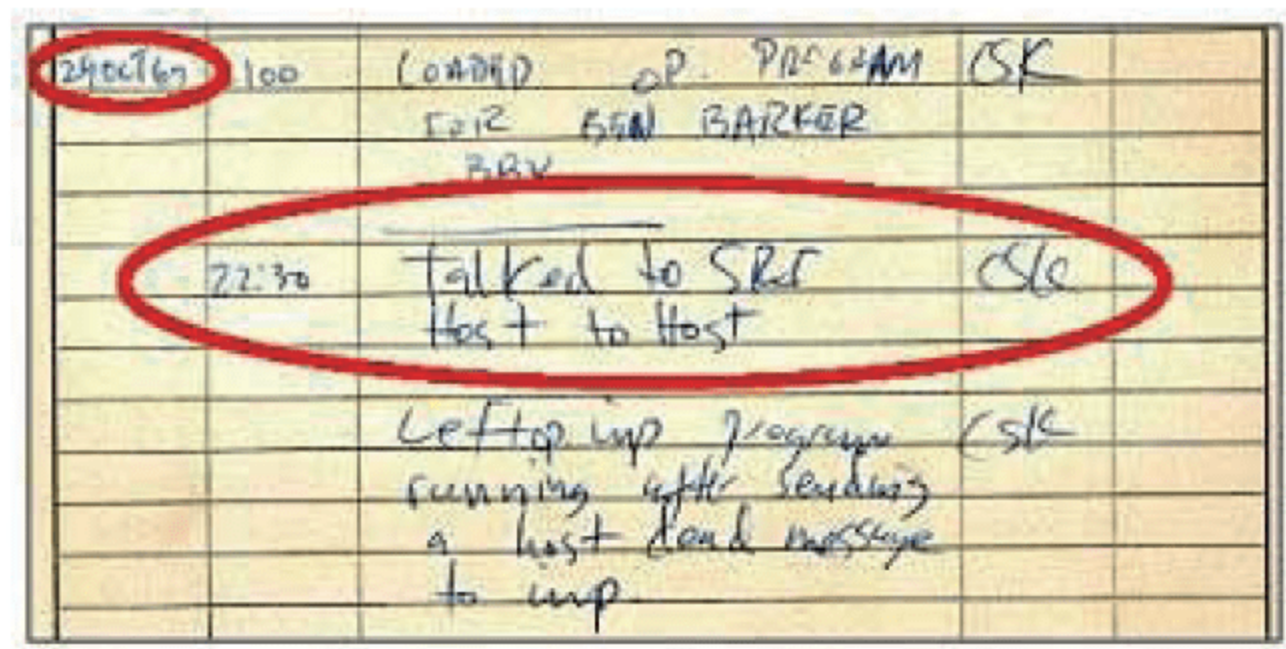 29Oct69 100 LOADED OP. PROGRAM CSK
FOR BEN BARKER
BBV
22:30 Talked to SRI CSK
Host to Host
Left op imp program CSK
running after sending
a host dead message
to imp